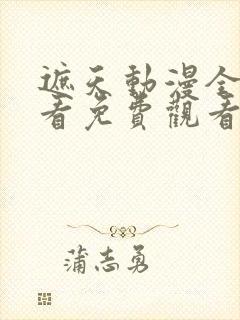 遮天動漫全
看免費觀看
蒲志勇